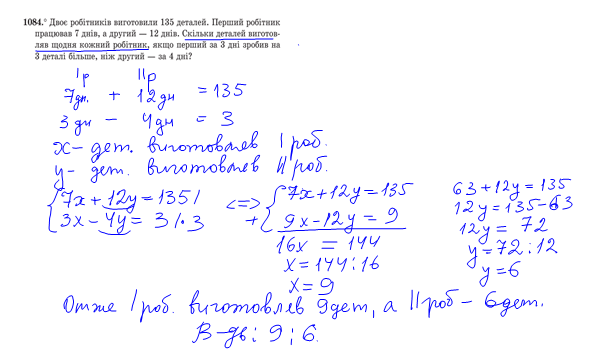 1084.° Двоє робітників виготовили 135 деталей. Перший робітник
працював 7 днів, а другий — 12 днів. Скільки деталей виготов-
ляв щодня кожний робітник, якщо перший за 3 дні зробив на
3 деталі більше, ніж другий — за 4 дні?
I р II р
7 дн. + 12 дн = 135
3 дн - 4 дн = 3
x - дет. виготовляв I роб.
y - дет. виготовляв II роб.
{7x + 12y = 135 |
{3x - 4y = 3 | · 3
<=> {7x + 12y = 135
+ {9x - 12y = 9
16x = 144
x = 144 : 16
x = 9
63 + 12y = 135
12y = 135 - 63
12y = 72
y = 72 : 12
y = 6
Отже I роб. виготовляв 9 дет, а II роб - 6 дет.
В-дь: 9; 6.